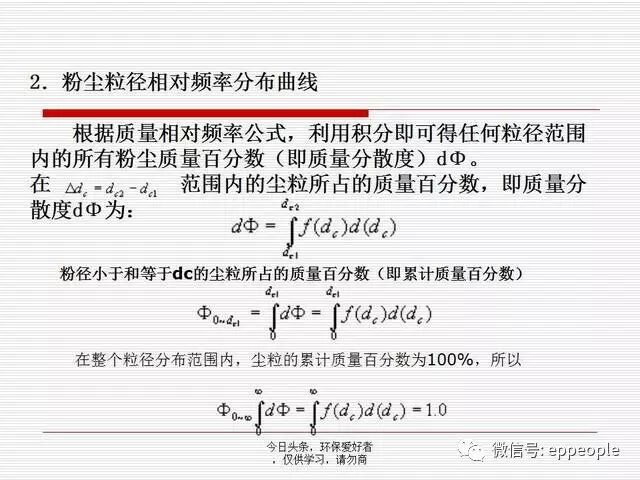 2．粉尘粒径相对频率分布曲线
根据质量相对频率公式，利用积分即可得任何粒径范围
内的所有粉尘质量百分数（即质量分散度）dΦ。
在 Δd_c = d_c2 − d_c1 范围内的尘粒所占的质量百分数，即质量分
散度dΦ为：
dΦ = ∫_{d_c1}^{d_c2} f(d_c)d(d_c)
粉径小于和等于dc的尘粒所占的质量百分数（即累计质量百分数）
Φ_{0~d_c1} = ∫_0^{d_c1} dΦ = ∫_0^{d_c1} f(d_c)d(d_c)
在整个粒径分布范围内，尘粒的累计质量百分数为100%，所以
Φ_{0~∞} ∫_0^∞ dΦ = ∫_0^∞ f(d_c)d(d_c) = 1.0
今日头条，环保爱好者
，仅供学习，请勿商
微信号: eppeople